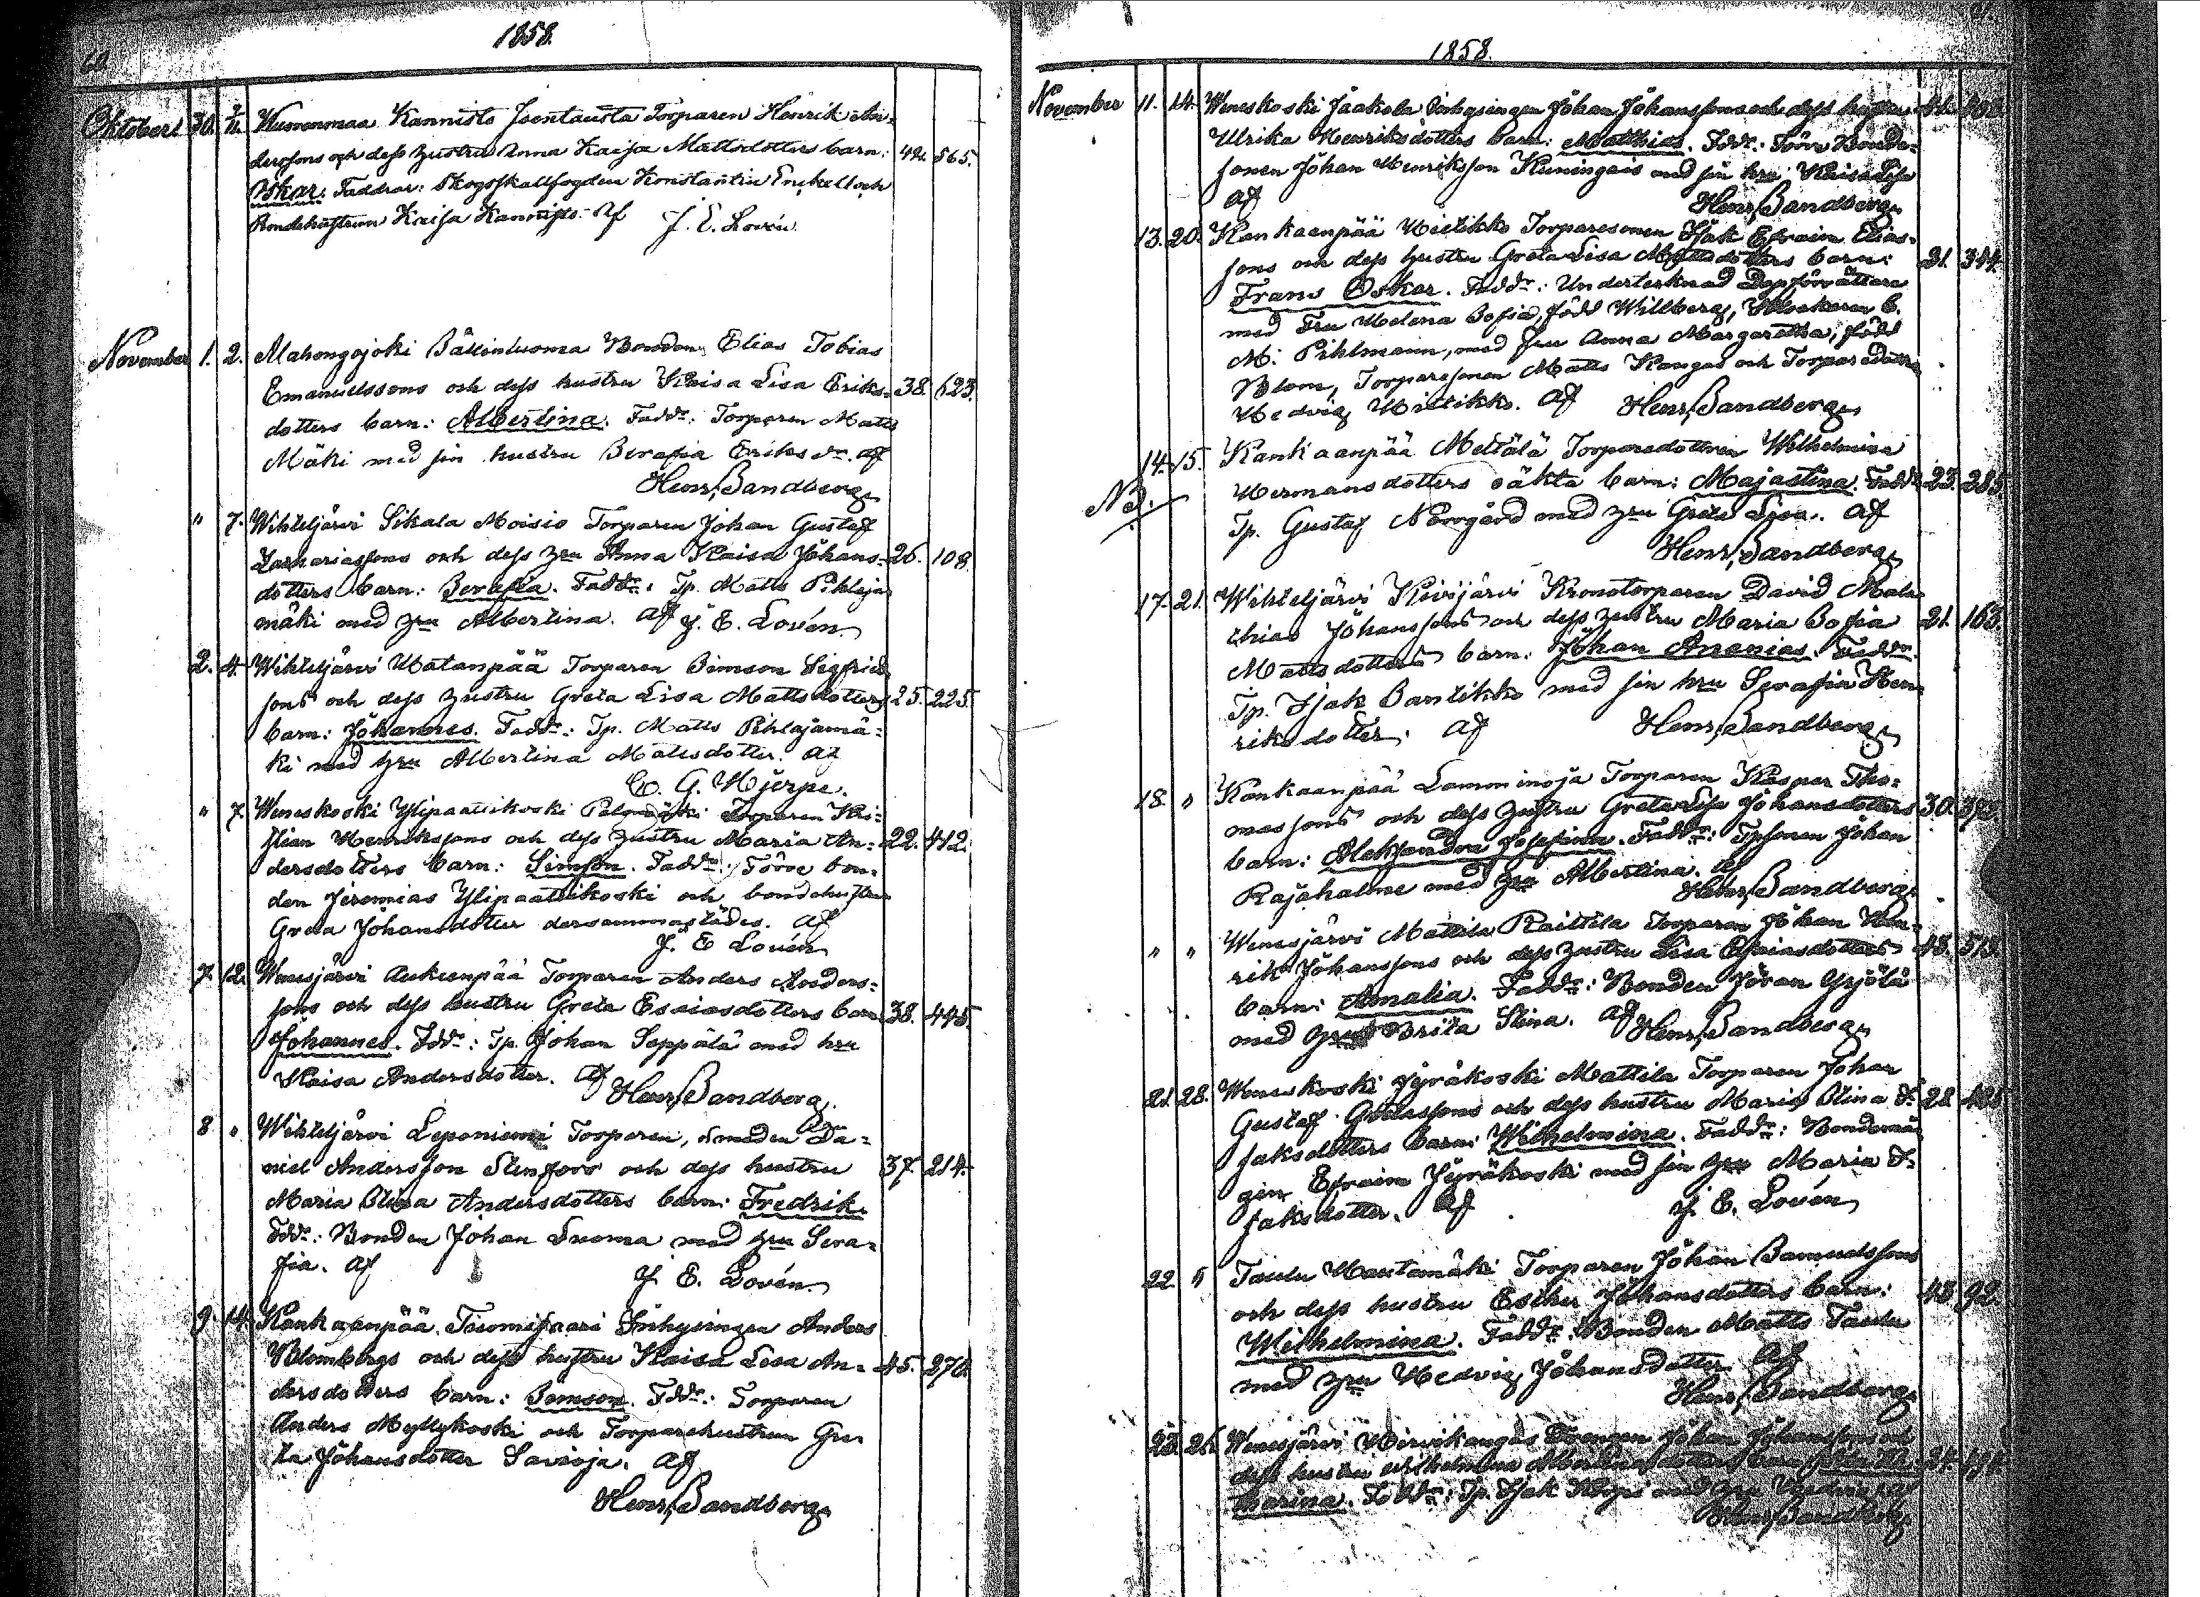 60.
1858.
Oktober 30. 2/11. Husvenmaa Kannisto Isontausta Torparen Henrik An-
derssons och dess hustru Anna Kaisa Mattsdotters barn: 42. 565.
Oskar. Faddrar: Skogsskallfogden Konstantin Enkell och
Bondehustrun Kaisa Kannisto. Af J. E. Lovén.
November 1. 2. Alahongojoki Bonden Elias Tobias
Emanuelssons och dess hustru Kaisa Lisa Eriks- 38. 123.
dotters barn: Albertina. Faddr: Torparen Matts
Mäki med sin hustru Serafia Eriksdr. Af
Henr. Sandberg
" 7. Wihteljärvi Sikala Moisio Torparen Johan Gustaf
Zachariassons och dess hru Anna Kaisa Johans- 26. 108.
dotters barn: Serafia. Faddr: Tp. Matts Pihlaja
mäki med hru Albertina. Af J. E. Lovén.
2. 4. Wihteljärvi Matanpää Torparen Simson Sigfrids
sons och dess hustru Greta Lisa Mattsdotters 25. 225.
barn: Johannes. Faddr: Tp. Matts Pihlajamä-
ki med hru Albertina Mattsdotter. Af
C. G. Hjerpe.
" 7. Weneskoski Ylipaattikoski Torparen Kri-
stian Henrikssons och dess hustru Maria An- 22. 412.
dersdotters barn: Simson. Faddr: Förre bon-
den Jeremias Ylipaattikoski och bondehustrun
Greta Johansdotter dersammastädes. Af
J. E. Lovén
7. 12. Wenesjärvi Aukeenpää Torparen Anders Anders-
sons och dess hustru Greta Esaiasdotters barn 38. 495.
Johannes. Fddr: Tp. Johan Seppälä med hru
Kaisa Andersdotter. Af
Henr. Sandberg.
8. " Wihteljärvi Leponiemi Torparen, smeden Da-
niel Andersson Stenfors och dess hustru 37. 214.
Maria Stina Andersdotters barn: Fredrik.
Fddr: Bonden Johan Luoma med hru Sera-
fia. Af J. E. Lovén.
9. 14. Kankaanpää Inhysingen Anders
Blombergs och dess hustru Kaisa Lisa An- 45. 270.
dersdotters barn: Samson. Fddr: Torparen
Anders Myllykoski och Torparehustrun Gre-
ta Johansdotter Savioja. Af
Henr. Sandberg
1858.
November 11. 14. Weneskoski Jaakola Inhysingen Johan Johanssons och dess hustru
Ulrika Henriksdotters barn: Matthias. Fddr: Förre Bonde-
sonen Johan Henriksson Kuningais med sin hru Kaisa Lisa
Af Henr. Sandberg
13. 20. Kankaanpää Wietikko Torparesonen Isak Efraim Elias-
sons och dess hustru Greta Lisa Mattsdotters barn: 21. 344.
Frans Oskar. Faddr: Undertecknad Dopförrättare
med Fru Helena Sofia, född Willberg, Klockaren C.
M. Pihlmann, med Fru Anna Margaretha, född
Blom, Torparesonen Matts Kangas och Torparedottren
Hedvig Wietikko. Af Henr. Sandberg
14. 15. Kankaanpää Mettälä Torparedottren Wilhelmina
NB. Hermansdotters oäkta barn: Majastina. Faddr: 23. 285.
Tp. Gustaf Norrgård med hru Greta Lisa. Af
Henr. Sandberg
17. 21. Wihteljärvi Kivijärvi Kronotorparen David Mat-
thias Johanssons och dess hustru Maria Sofia 21. 163.
Mattsdotters barn: Johan Ananias. Faddr:
Tp. Isak Santikko med sin hru Serafia Hen-
riksdotter. Af Henr. Sandberg
18. " Kankaanpää Lamminoja Torparen Kasper Tho-
massons och dess hustru Greta Lisa Johansdotters 30. 392.
barn: Aleksandra Josefina. Faddr: Tpsonen Johan
Rajahalme med hru Albertina. Af
Henr. Sandberg
" " Wenesjärvi Mattila Raittila Torparen Johan Hen-
rik Johanssons och dess hustru Lisa Esaiasdotters 48. 513.
barn: Amalia. Faddr: Bonden Jöran Yrjölä
med hru Brita Stina. Af Henr. Sandberg
21. 28. Weneskoski Jyräkoski Mattila Torparen Johan
Gustaf Gustafssons och dess hustru Maria Stina I- 28.
saksdotters barn: Wilhelmina. Faddr: Bondemå-
gen Efraim Jyräkoski med sin hru Maria I-
saksdotter. Af J. E. Lovén
22. " Taulu Hautamäki Torparen Johan Samuelssons
och dess hustru Esther Johansdotters barn: 43. 92.
Wilhelmina. Faddr: Bonden Matts Taulu
med hru Hedvig Johansdotter. Af
Henr. Sandberg
25. 26. Wenesjärvi Hirvikangas Drengen Johan Johanssons och
dess hustru Wilhelmina barn:
Faddr: Tp. Isak med hru Af
Henr. Sandberg